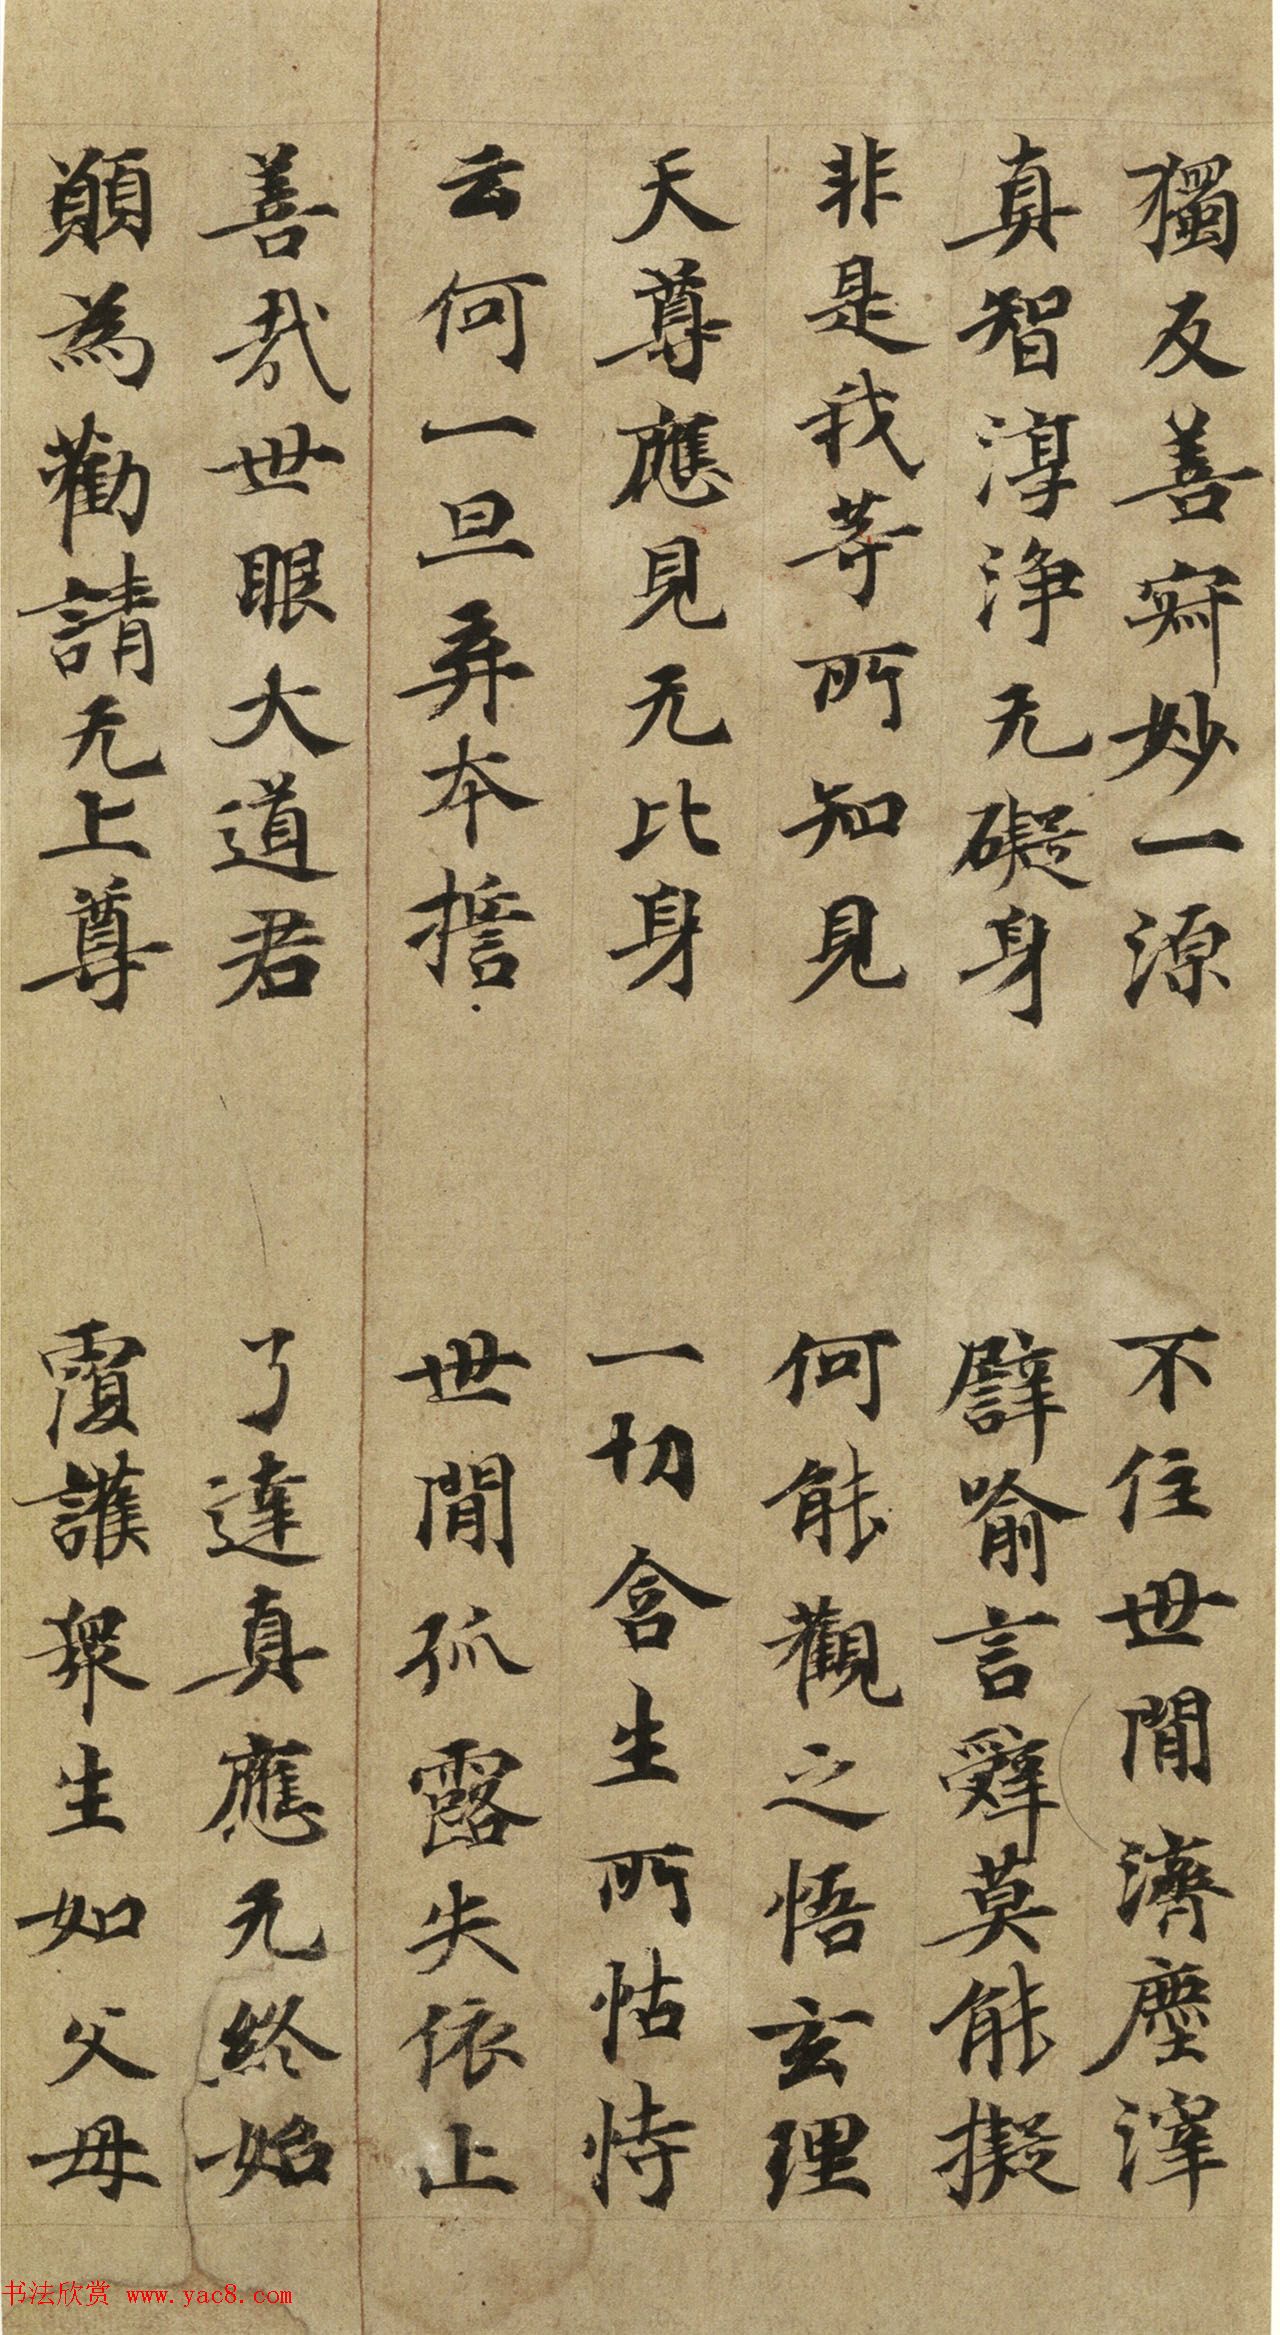 獨反善寂妙一源　不住世間濟塵滓
真智淳淨无礙身　譬喻言辭莫能擬
非是我等所知見　何能觀之悟玄理
天尊應見无比身　一切含生所怙恃
云何一旦弃本誓　世間孤露失依止
善哉世眼大道君　了達真應无終始
願為勸請无上尊　覆護眾生如父母
书法欣赏 www.yac8.com